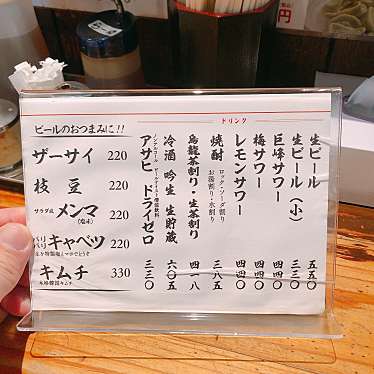 ビールのおつまみに!!
ザーサイ 220
枝豆 220
サラダ風 メンマ(塩味) 220
パリパリ キャベツ 220
キムチ 330
本場韓国キムチ
ドリンク
生ビール 五五〇
生ビール(小) 三三〇
巨峰サワー 四四〇
梅サワー 四四〇
レモンサワー 四四〇
焼酎 三八五
ロック・ソーダ割り
お湯割り・水割り
烏龍茶割り・生茶割り 四一八
冷酒 吟生 生貯蔵 六〇五
アサヒ ドライゼロ 三三〇
円